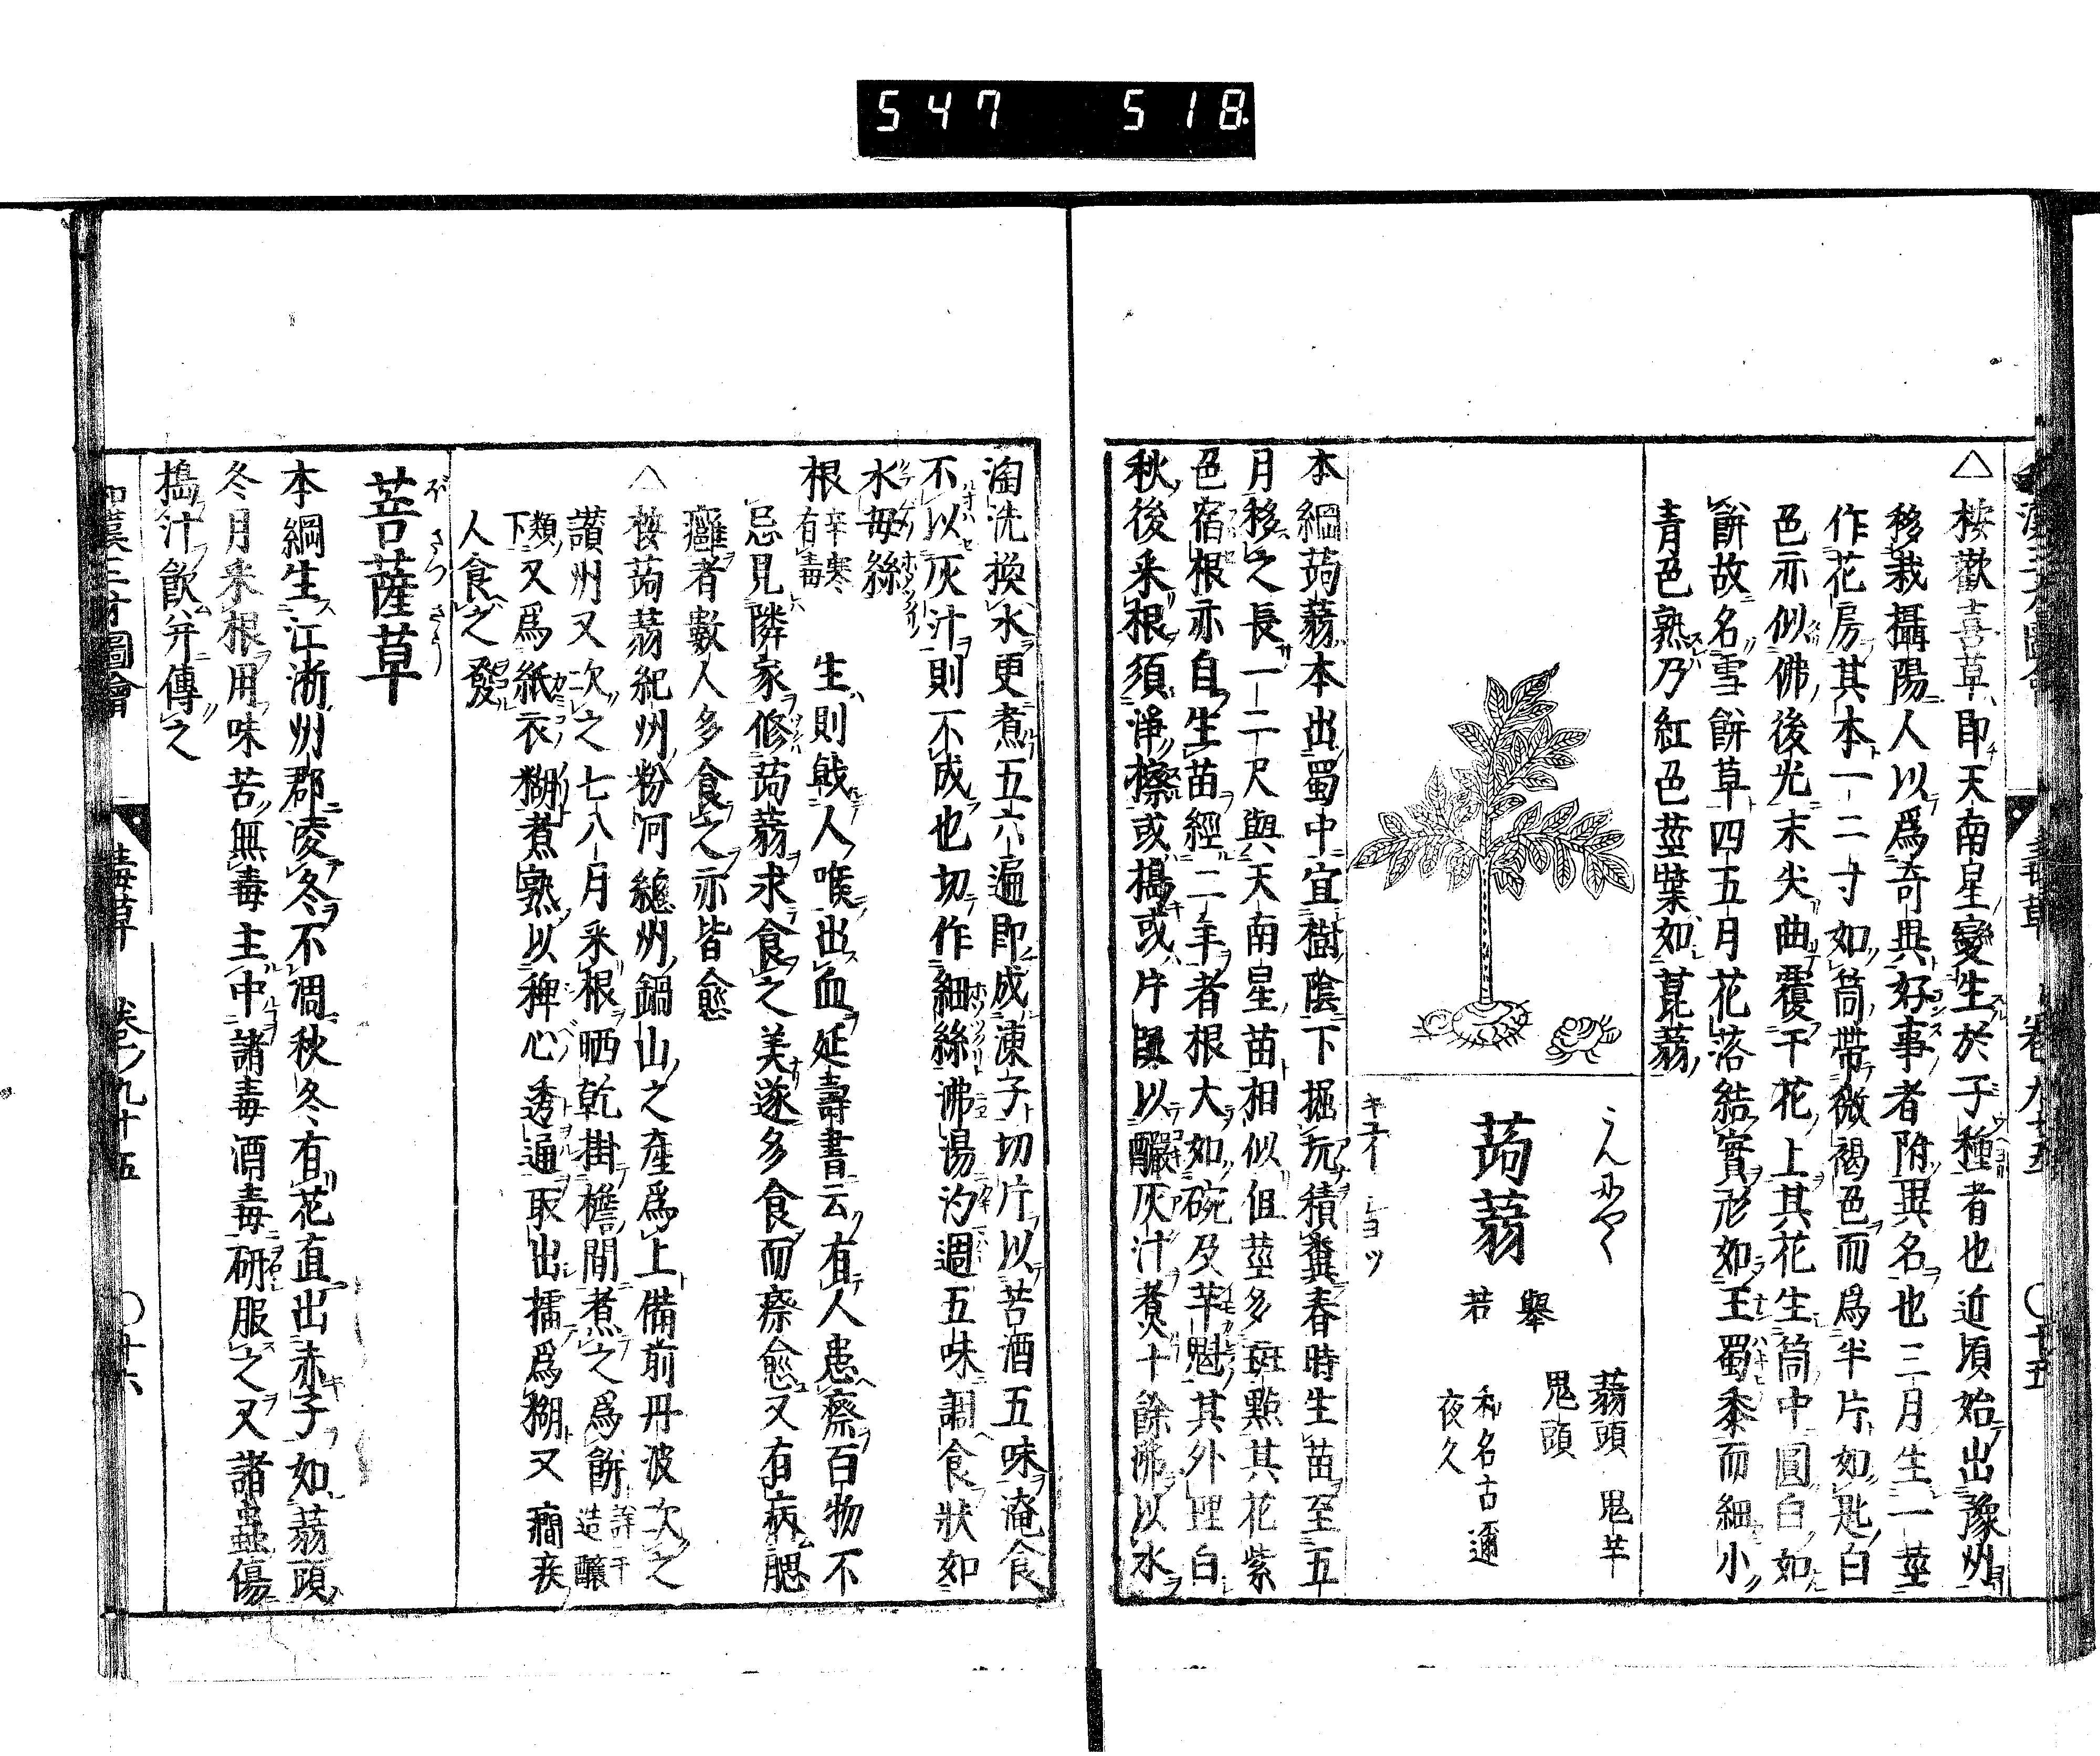 547 518
△ 桉歡喜草即天南星變生於子種者也近頃始出豫州
移栽攝陽人以爲奇異好事者附異名也三月生一莖
作花房其本一二寸如筒帶微褐色而爲半片如匙白
色亦似佛後光末尖曲覆于花上其花生筒中圓白如
餅故名雪餅草四五月花落結實形如玉蜀黍而細小
青色熟乃紅色莖葉如蒟蒻
こんにやく
蒟蒻
キユイ シヨツ
蒻頭 鬼芋
鬼頭
和名古邇
夜久
本綱蒟蒻本出蜀中宜樹陰下掘坑積糞春時生苗至五
月移之長一二尺與天南星苗相似但莖多斑點其花紫
色宿根亦自生苗經二年者根大如碗及芋魁其外理白
秋後采根須淨擦或搗或片段以釅灰汁煑十餘沸以水
淘洗換水更煮五六遍即成凍子切片以苦酒五味淹食
不以灰汁則不成也切作細絲沸湯汋過五味調食狀如
水母絲
根 辛寒有毒 生則戟人喉出血延壽書云有人患瘵百物不
忌見隣家修蒟蒻求食之美遂多食而瘵愈又有病腮
癰者數人多食之亦皆愈
△ 桉蒟蒻紀州粉河總州鍋山之產爲上備前丹波次之
讃州又次之七八月采根晒乾掛檐間煮之爲餅 詳于造釀
類下 又爲紙衣糊煮熟以稗心透通取出擣爲糊又癎疾
人食之發
ぼさつさう
菩薩草
本綱生江淅州郡凌冬不凋秋冬有花直出赤子如蒻頭
冬月采根用味苦無毒主中諸毒酒毒研服之又諸蟲傷
搗汁飮并傳之
和漢三才圖會 毒草 卷ノ九十五 ○廿六